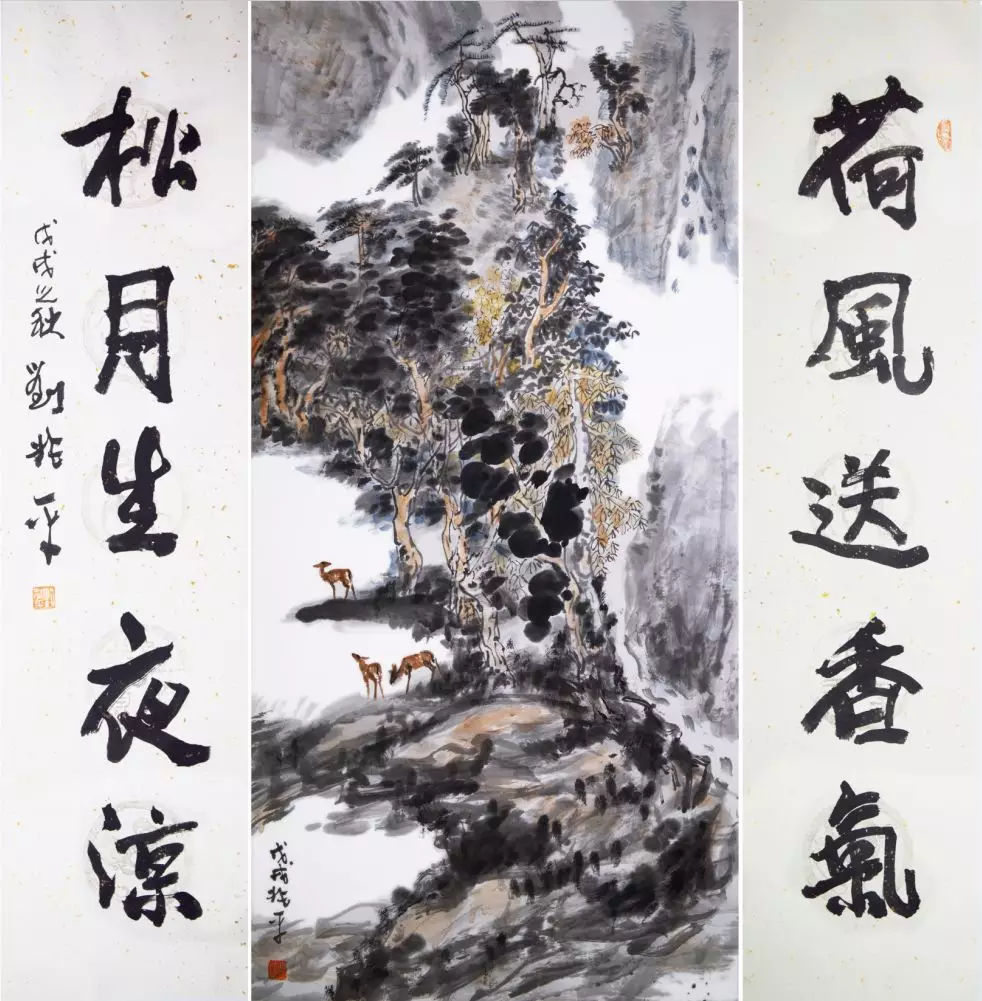 荷風送香氣
松月生夜涼
戊戌之秋 劉 平
戊戌 平